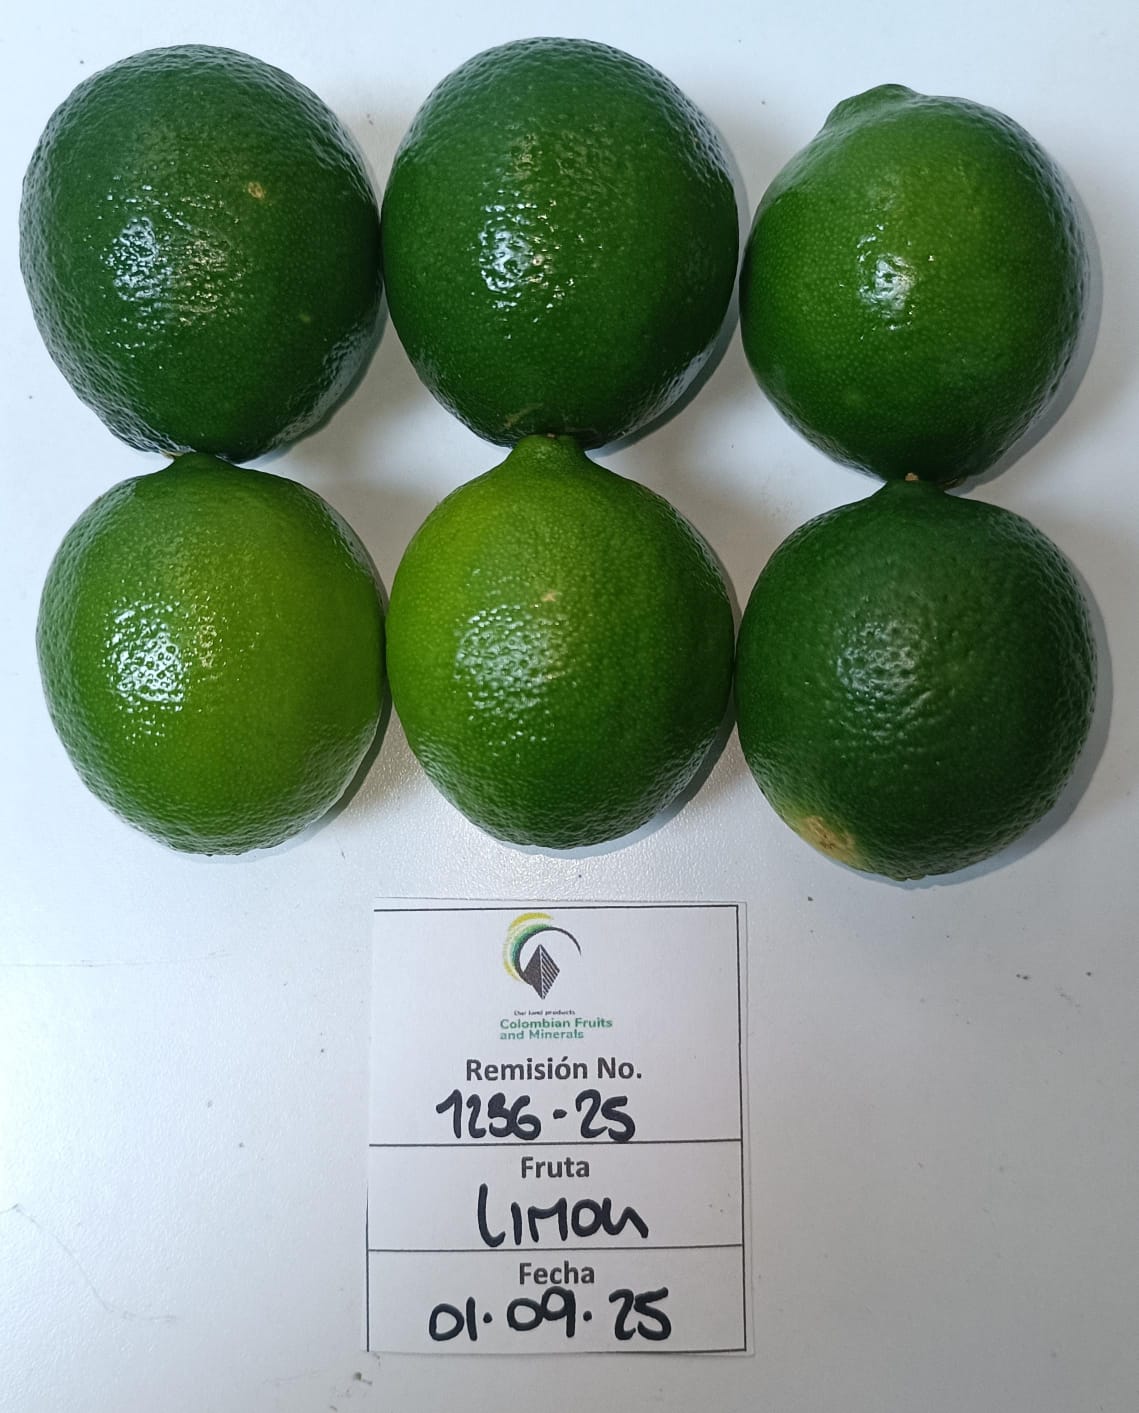 Our land products
Colombian Fruits
and Minerals
Remisión No.
1236-25
Fruta
LIMON
Fecha
01.09.25